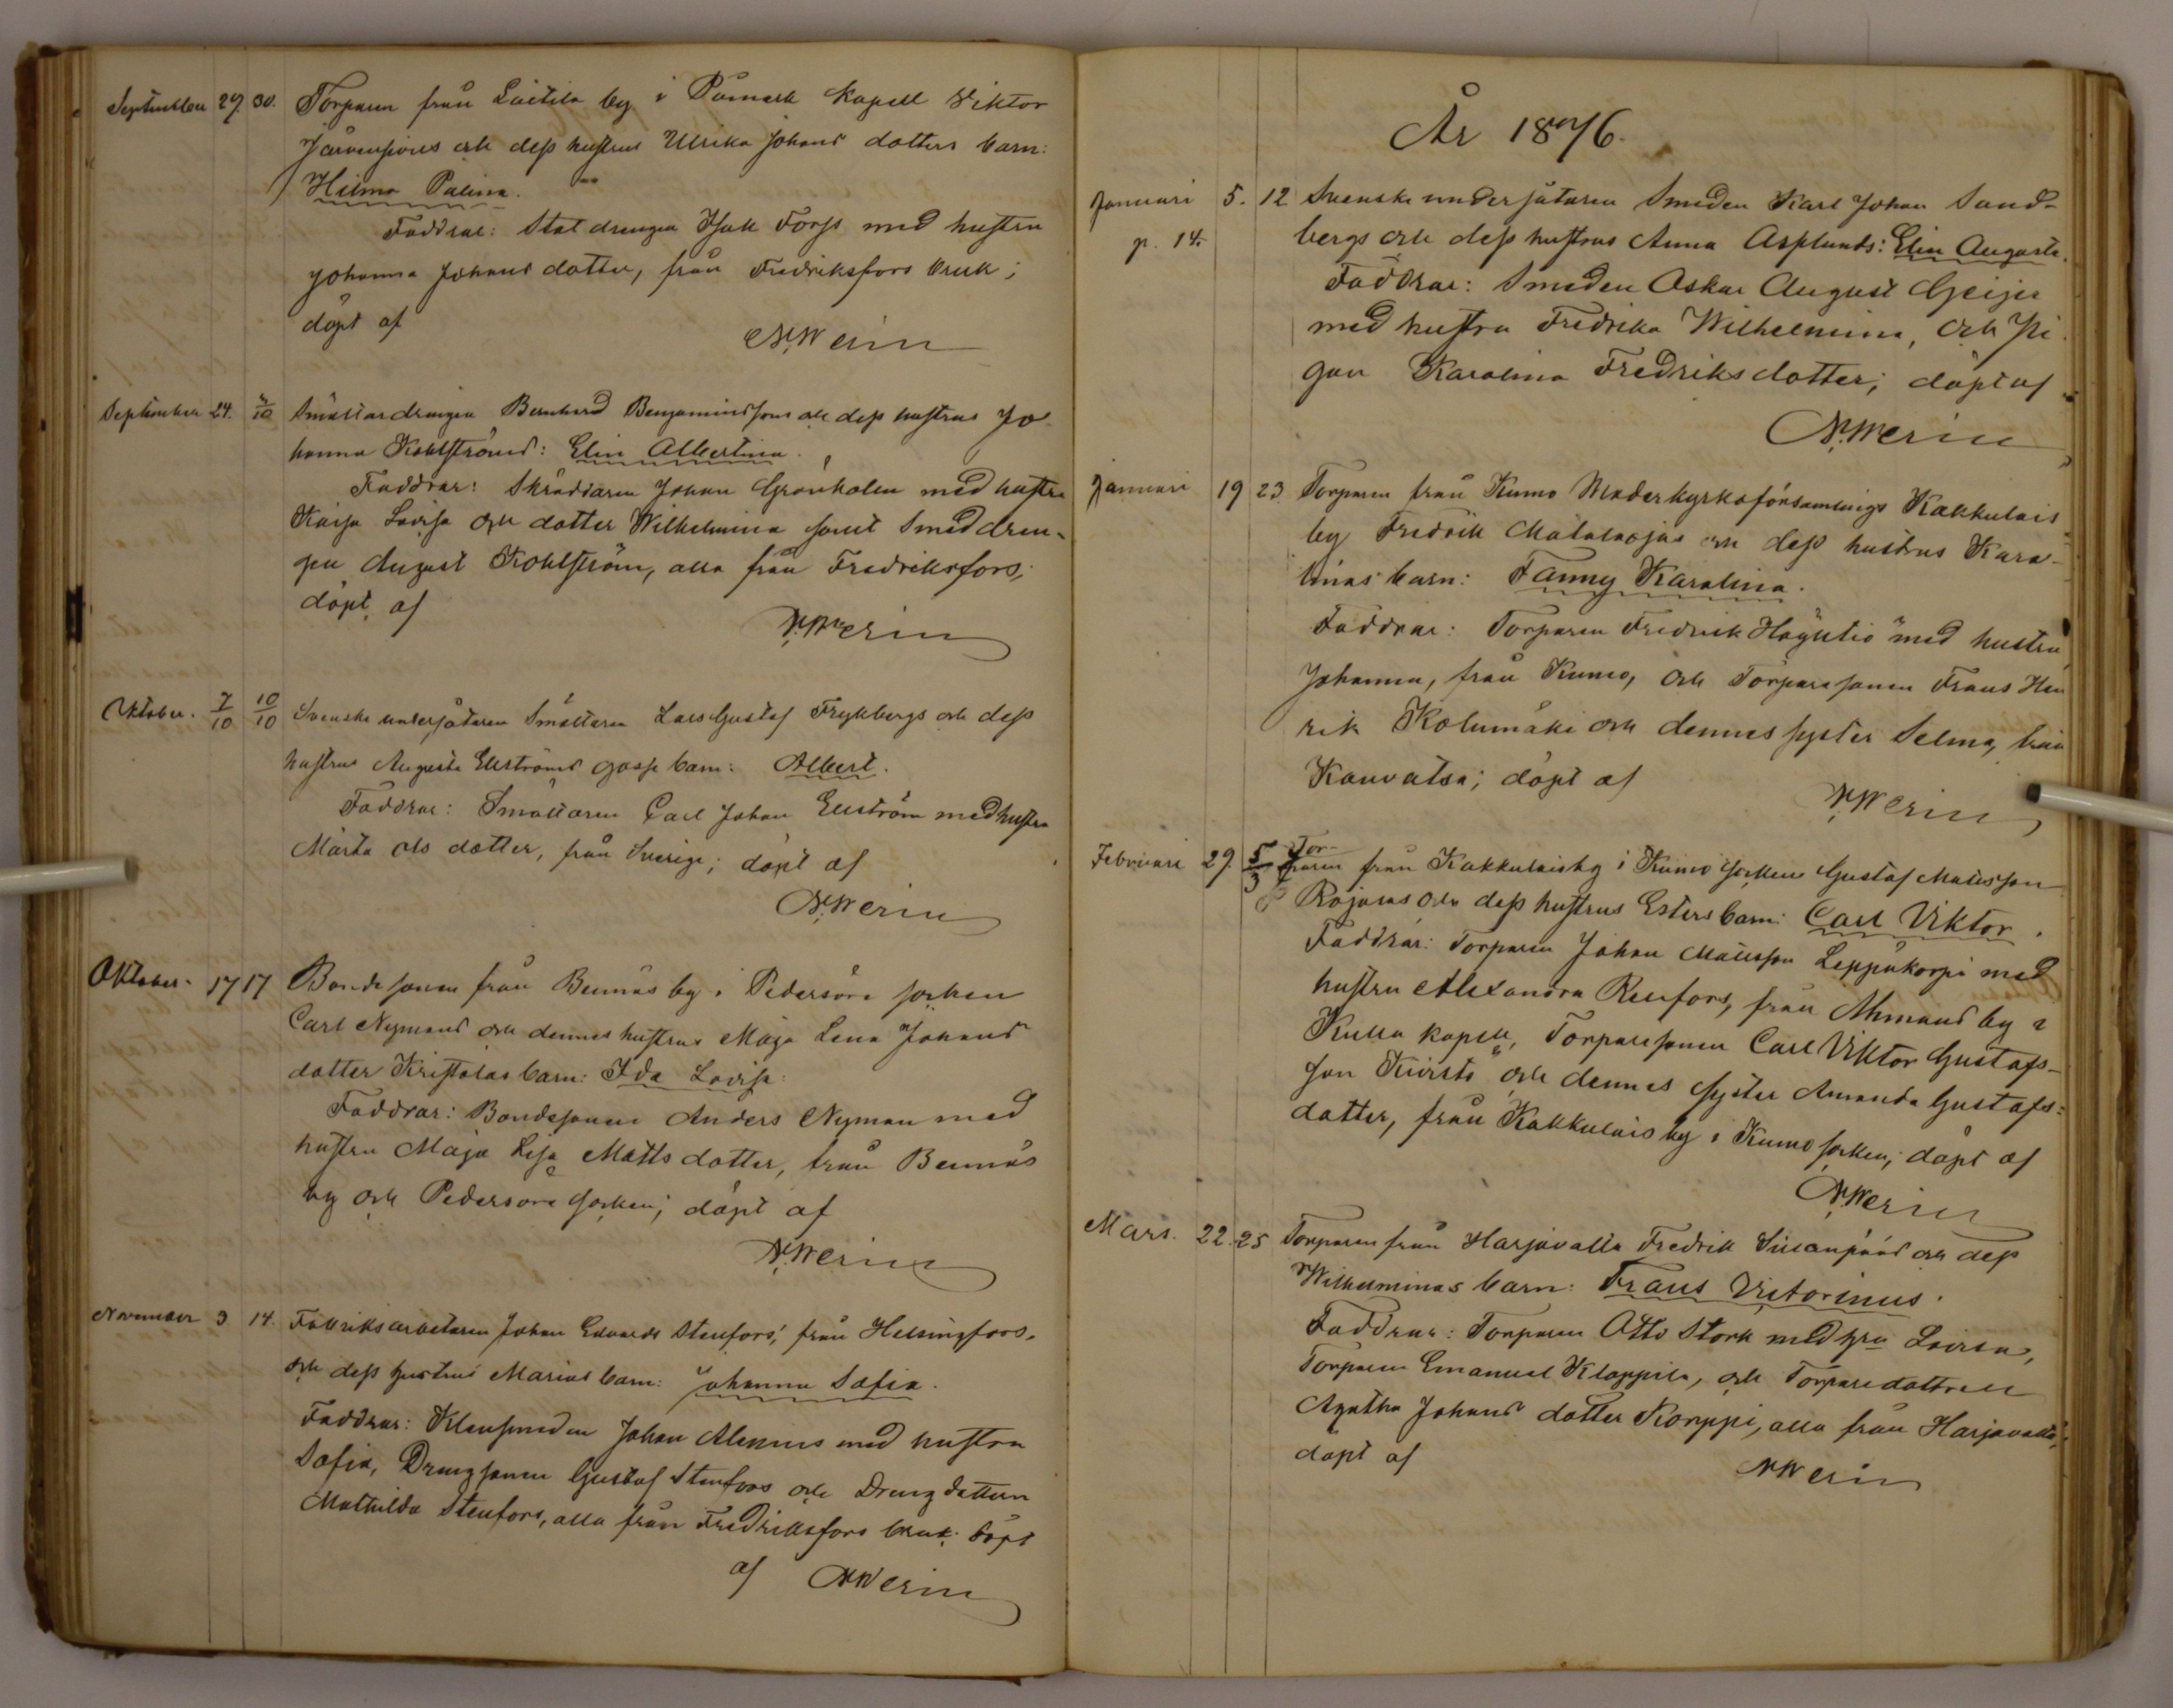 September 29. 30. Torparen från Laitila by i Påmark kapell Viktor
Järvensivus och dess hustrus Ulrika Johans dotters barn:
Hilma Palina.
Faddrar: Statdrengen Isak Forss med hustru
Johanna Johans dotter, från Fredriksfors bruk;
döpt af
N. Werin
September 24. 3/10 Smältardrengen Bernhard Benjaminssons och dess hustrus Jo-
hanna Kohlströms: Elin Albertina.
Faddrar: Skräddaren Johan Grönholm med hustru
Kaisa Lovisa och dotter Wilhelmina samt Smeddren-
gen August Kohlström, alla från Fredriksfors;
döpt af
N. Werin
Oktober. 7/10 10/10 Svenske undersåtaren Smältaren Lars Gustaf Frykbergs och dess
hustrus Augusta Ekströms gosse barn: Albert.
Faddrar: Smältaren Carl Johan Ekström med hustru
Märta Ols dotter, från Sverige; döpt af
N. Werin
Oktober. 17 17 Bondesonen från Bennäs by i Pedersöre socken
Carl Nymans och dennes hustrus Maja Lena Johans
dotter Kristolas barn: Ida Lovisa.
Faddrar: Bondesonen Anders Nyman med
hustru Maja Lisa Matts dotter, från Bennäs
by och Pedersöre socken; döpt af
N. Werin
November 3 14. Fabriksarbetaren Johan Edvards Stenfors', från Helsingfors.
och dess hustrus Marias barn: Johanna Sofia.
Faddrar: Klensmeden Johan Alenius med hustru
Sofia, Drengsonen Gustaf Stenfors och Drengdottern
Mathilda Stenfors, alla från Fredriksfors bruk; döpt
af N Werin
År 1876.
Januari 5. 12 Svenske undersåtaren Smeden Karl Johan Sand-
p. 14. bergs och dess hustrus Anna Asplunds: Elin Augusta.
Faddrar: Smeden Oskar August Geijer
med hustru Fredrika Wilhelmina, och Pi-
gan Karolina Fredriksdotter; döpt af
N. Werin
Januari 19 23 Torparen från Kumo Moderkyrkoförsamlings Kakkulais
by Fredrik Matalaojas och dess hustrus Karo-
linas barn: Fanny Karolina.
Faddrar: Torparen Fredrik Höystiö med hustru
Johanna, från Kumo, och Torparesonen Frans Hen
rik Kolumäki och dennes syster Selma, från
Kauvatsa; döpt af
N. Werin
Februari 29. 5/3 Tor-
paren från Kakkulais by i Kumo socken Gustaf Matsson
Rojanas och dess hustrus Esters barn: Carl Viktor.
Faddrar: Torparen Johan Matsson Leppäkorpi med
hustru Alexandra Renfors, från Ahmaus by i
Kulla kapell, Torparesonen Carl Viktor Gustafs-
son Kivistö, och dennes syster Amanda Gustafs-
dotter, från Kakkulais by i Kumo socken; döpt af
N. Werin
Mars. 22. 25 Torparen från Harjavalla Fredrik Susanpääs och dess
Wilhelminas barn: Frans Victorinus.
Faddrar: Torparen Otto Stork med hru Lovisa,
Torparen Emanuel Kloppila, och Torparedottren
Agatha Johans dotter Korppi, alla från Harjavalla;
döpt af
N Werin